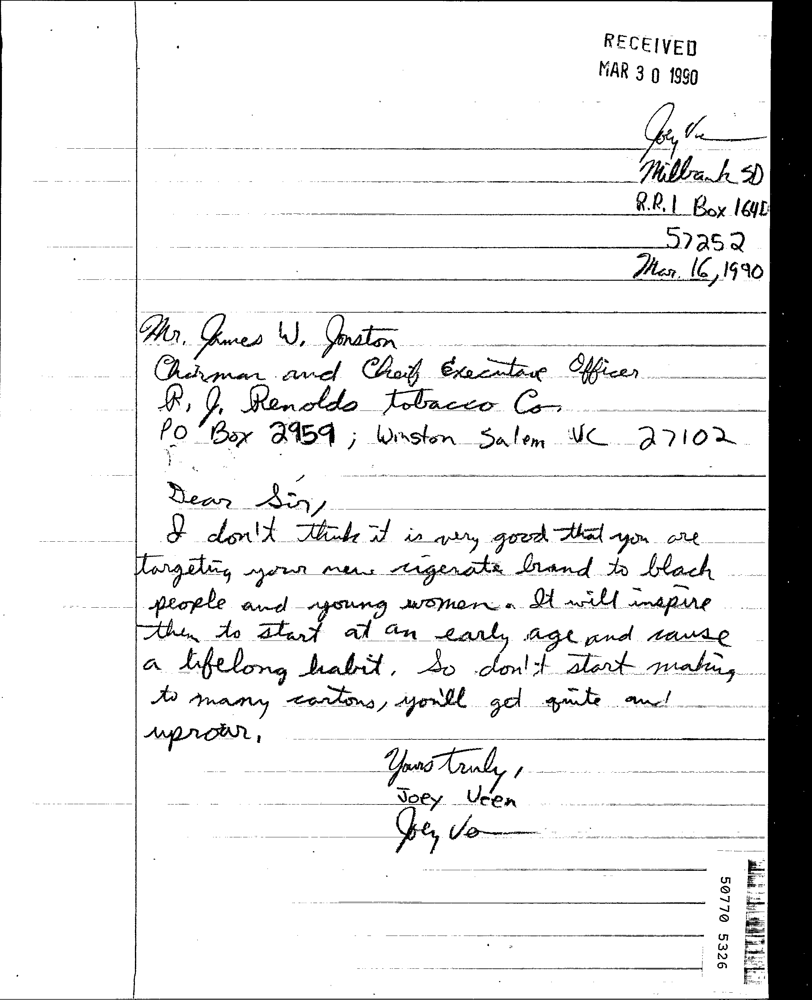 RECEIVED
MAR 30 1990
Joey Ve
Milbank SD
R.R.1 Box 164D
57252
Mar. 16, 1990
Mr. James W. Jonston
Chairman and Cheif Executave Officer
R. J. Renolds tobacco Co.
PO Box 2959; Winston Salem NC 27102
Dear Sir,
I don't think it is very good that you are
targeting your new cigerate brand to black
people and young women. It will inspire
them to start at an early age and cause
a lifelong habit. So don't start making
to many cartons, you'll get quite an
uproar.
Yours truly,
Joey Veen
Joey Ve
50770 5326